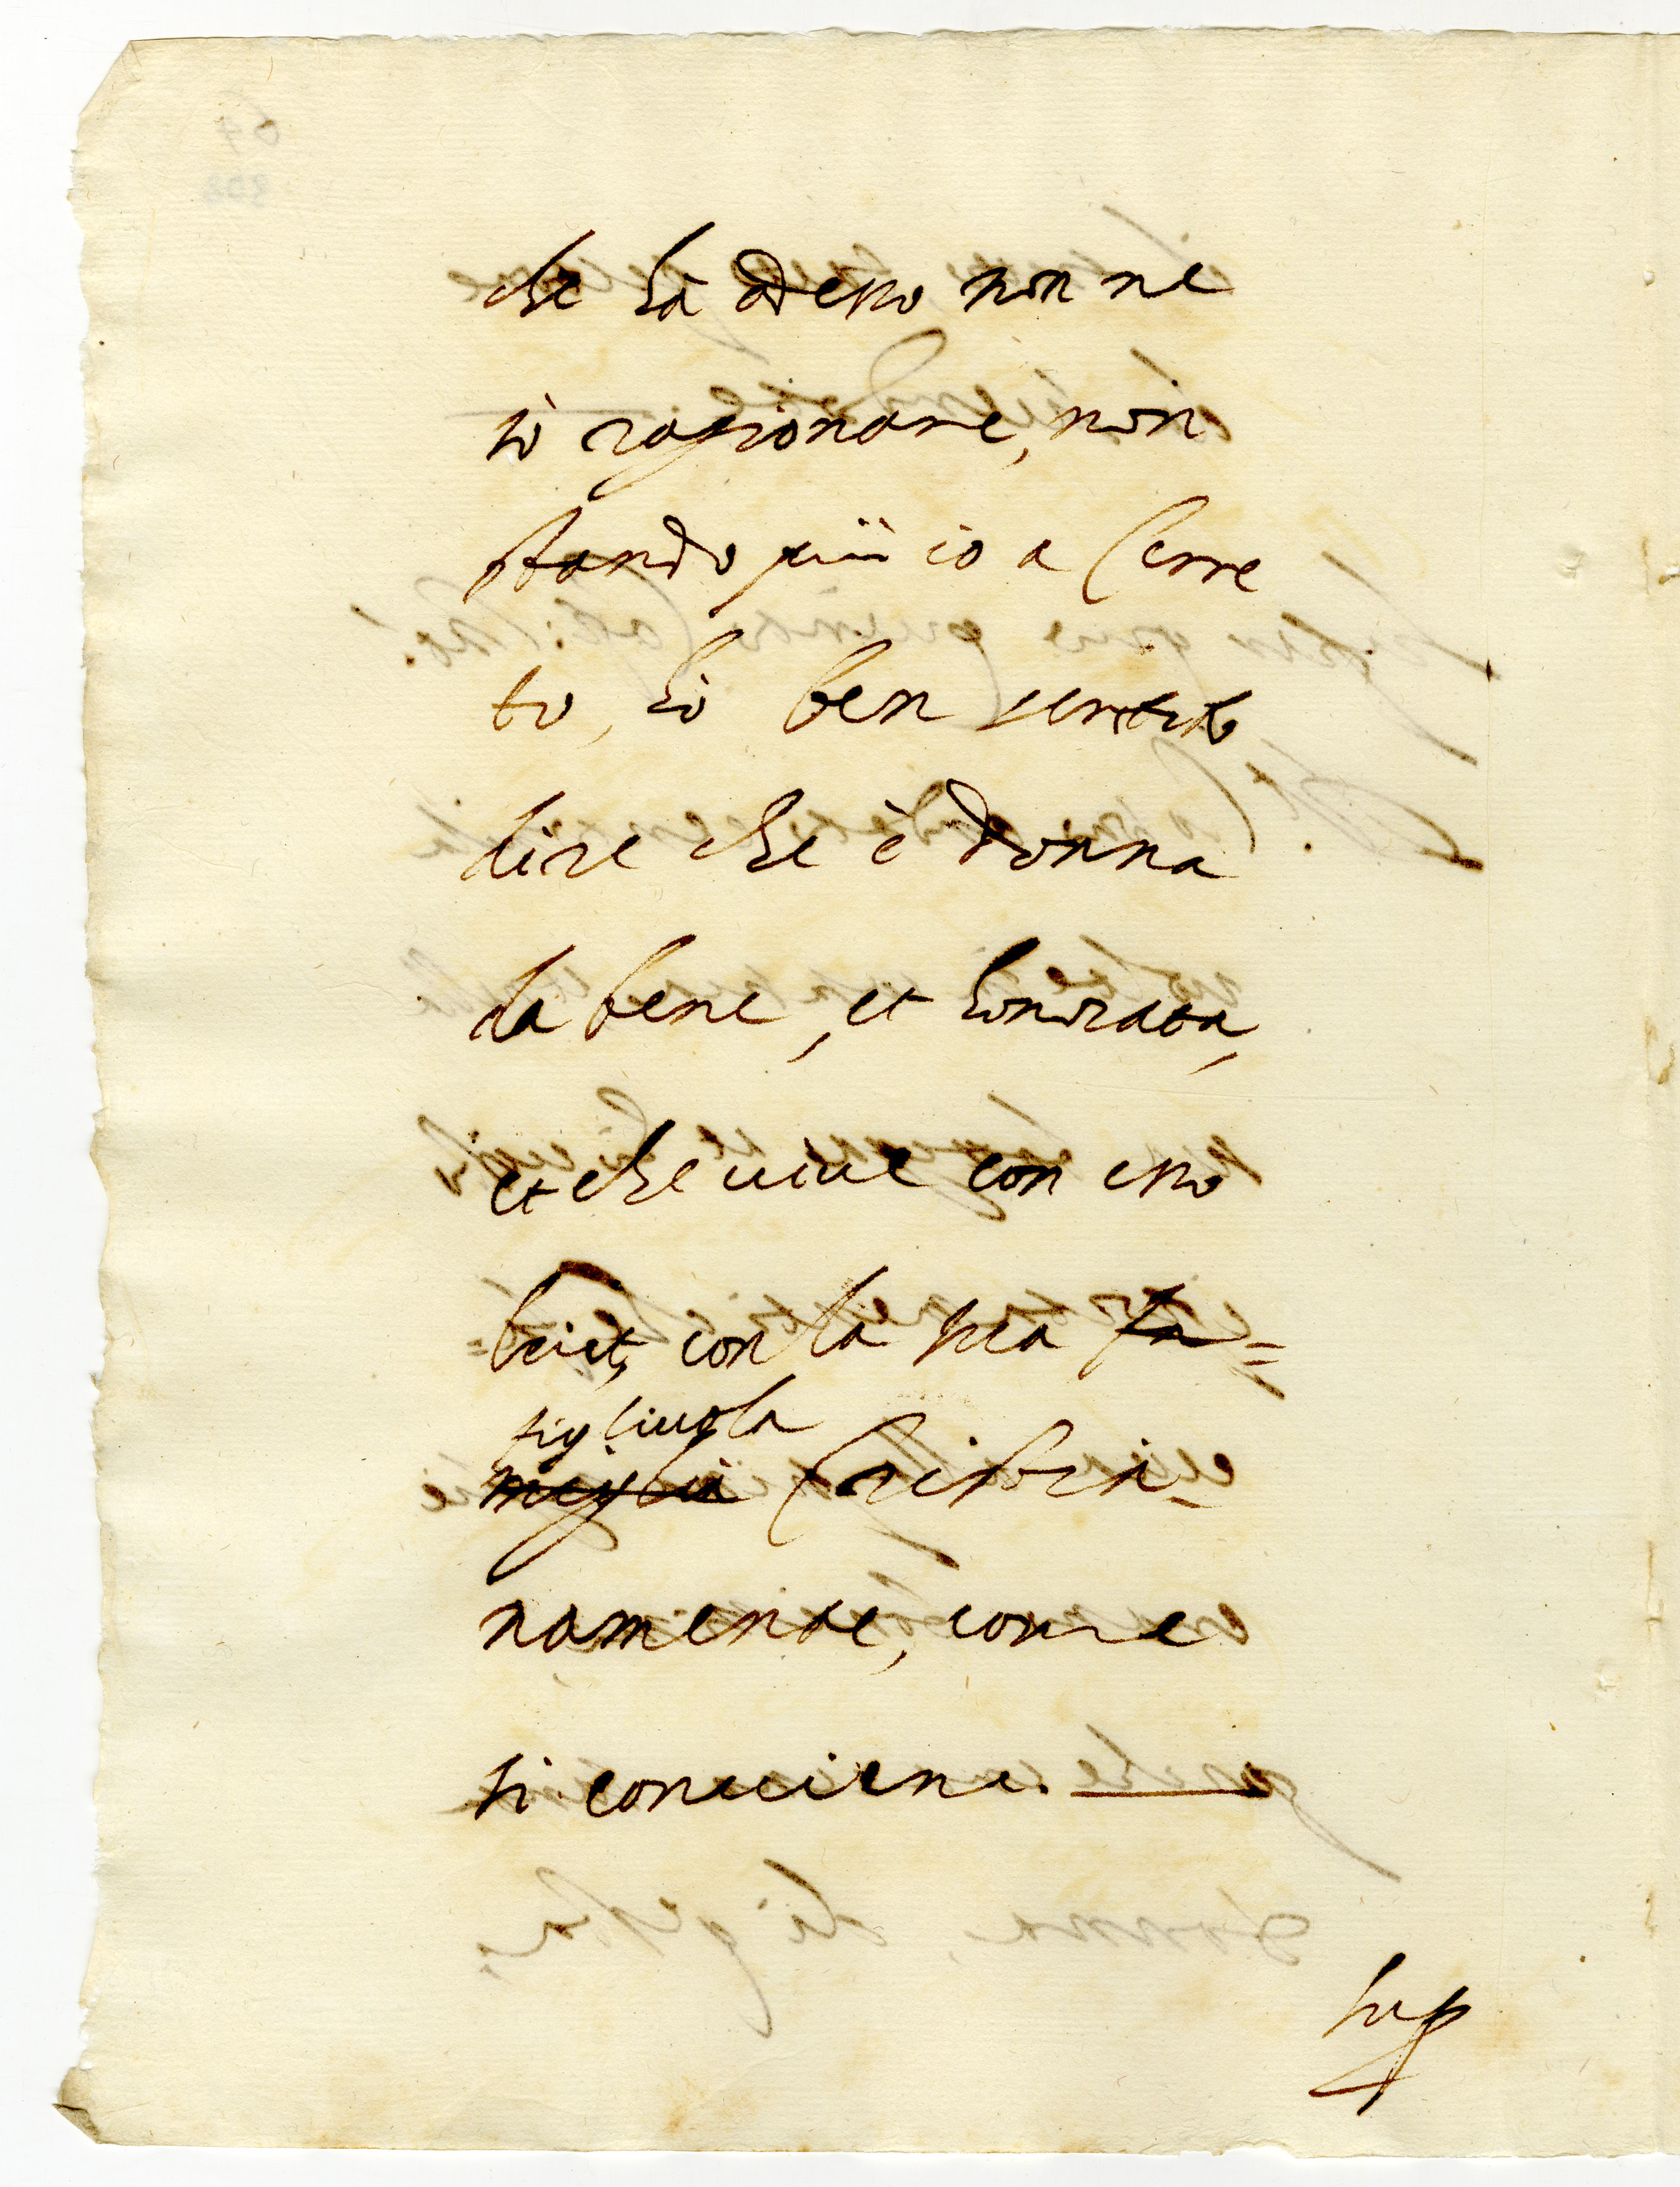 che hà adesso non ne
sò ragionare, non
stando più io a Cerre
to, hò ben sentito
dire che è donna
da bene, et honorata,
et che uiue con esso
et con la sua fa=
figliuola
miglia Cristia=
namente, come
si conuiene.
Sup